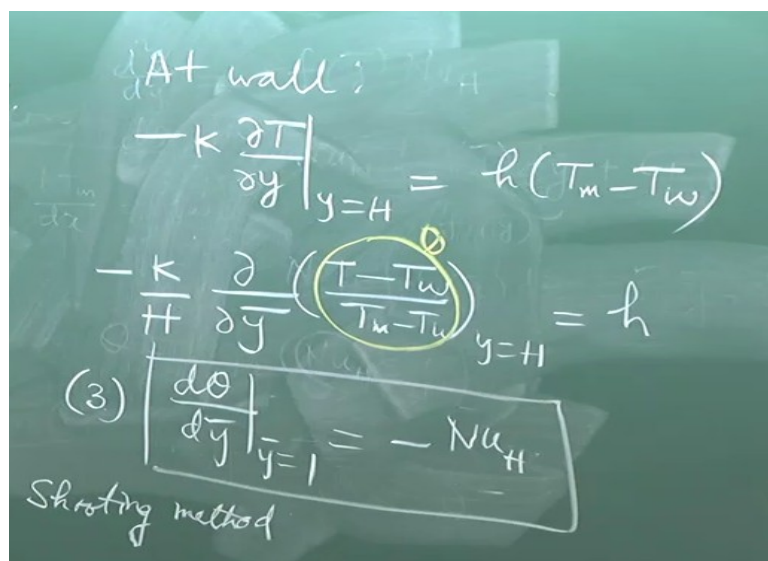 At wall:
-K ∂T/∂y|y=H = h(Tm-Tw)
θ
-K/H ∂/∂ȳ ((T-Tw)/(Tm-Tw))y=H = h
(3) dθ/dȳ|ȳ=1 = - NuH
Shooting method